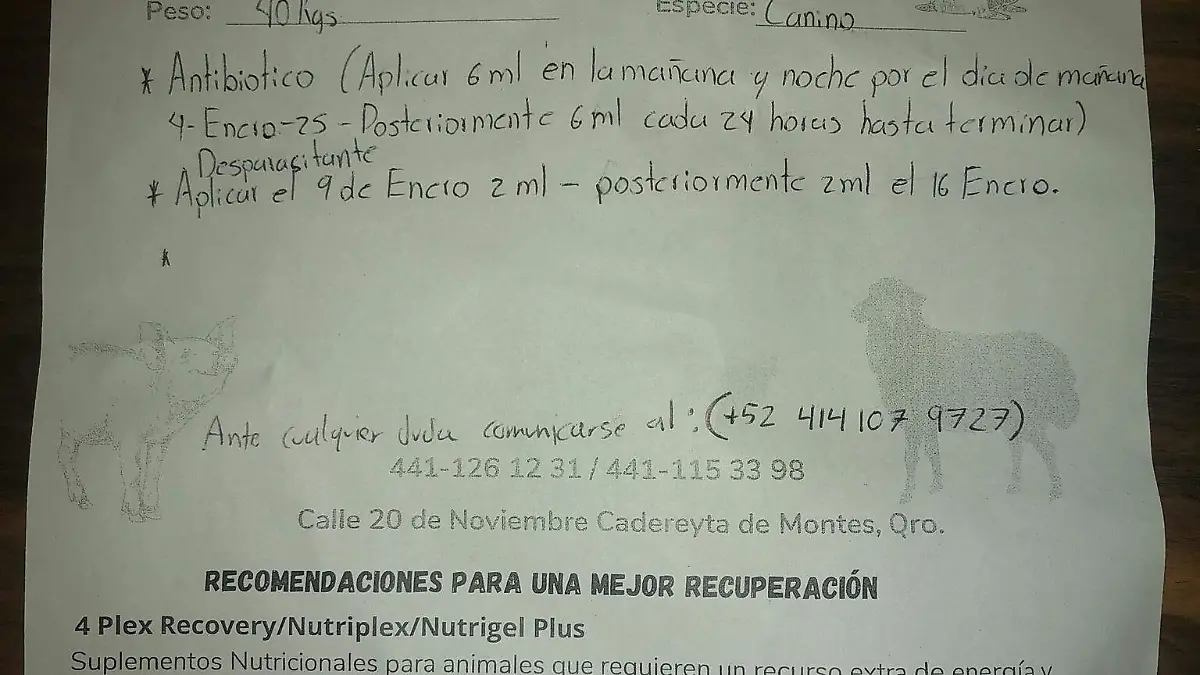 Peso: 40 kgs Especie: Canino
* Antibiotico (Aplicar 6 ml en la mañana y noche por el dia de mañana
4-Enero-25 - Posteriormente 6 ml cada 24 horas hasta terminar)
Desparasitante
* Aplicar el 9 de Enero 2 ml - posteriormente 2 ml el 16 Enero.
*
Ante cualquier duda comunicarse al: (+52 414 107 9727)
441-126 12 31 / 441-115 33 98
Calle 20 de Noviembre Cadereyta de Montes, Qro.
RECOMENDACIONES PARA UNA MEJOR RECUPERACIÓN
4 Plex Recovery/Nutriplex/Nutrigel Plus
Suplementos Nutricionales para animales que requieren un recurso extra de energía y